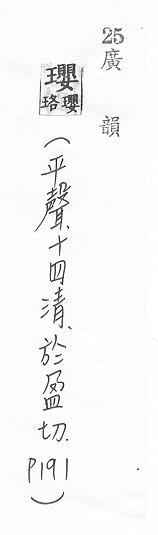 25廣韻
瓔 瓔珞
(平聲、十四清、於盈切、P191)